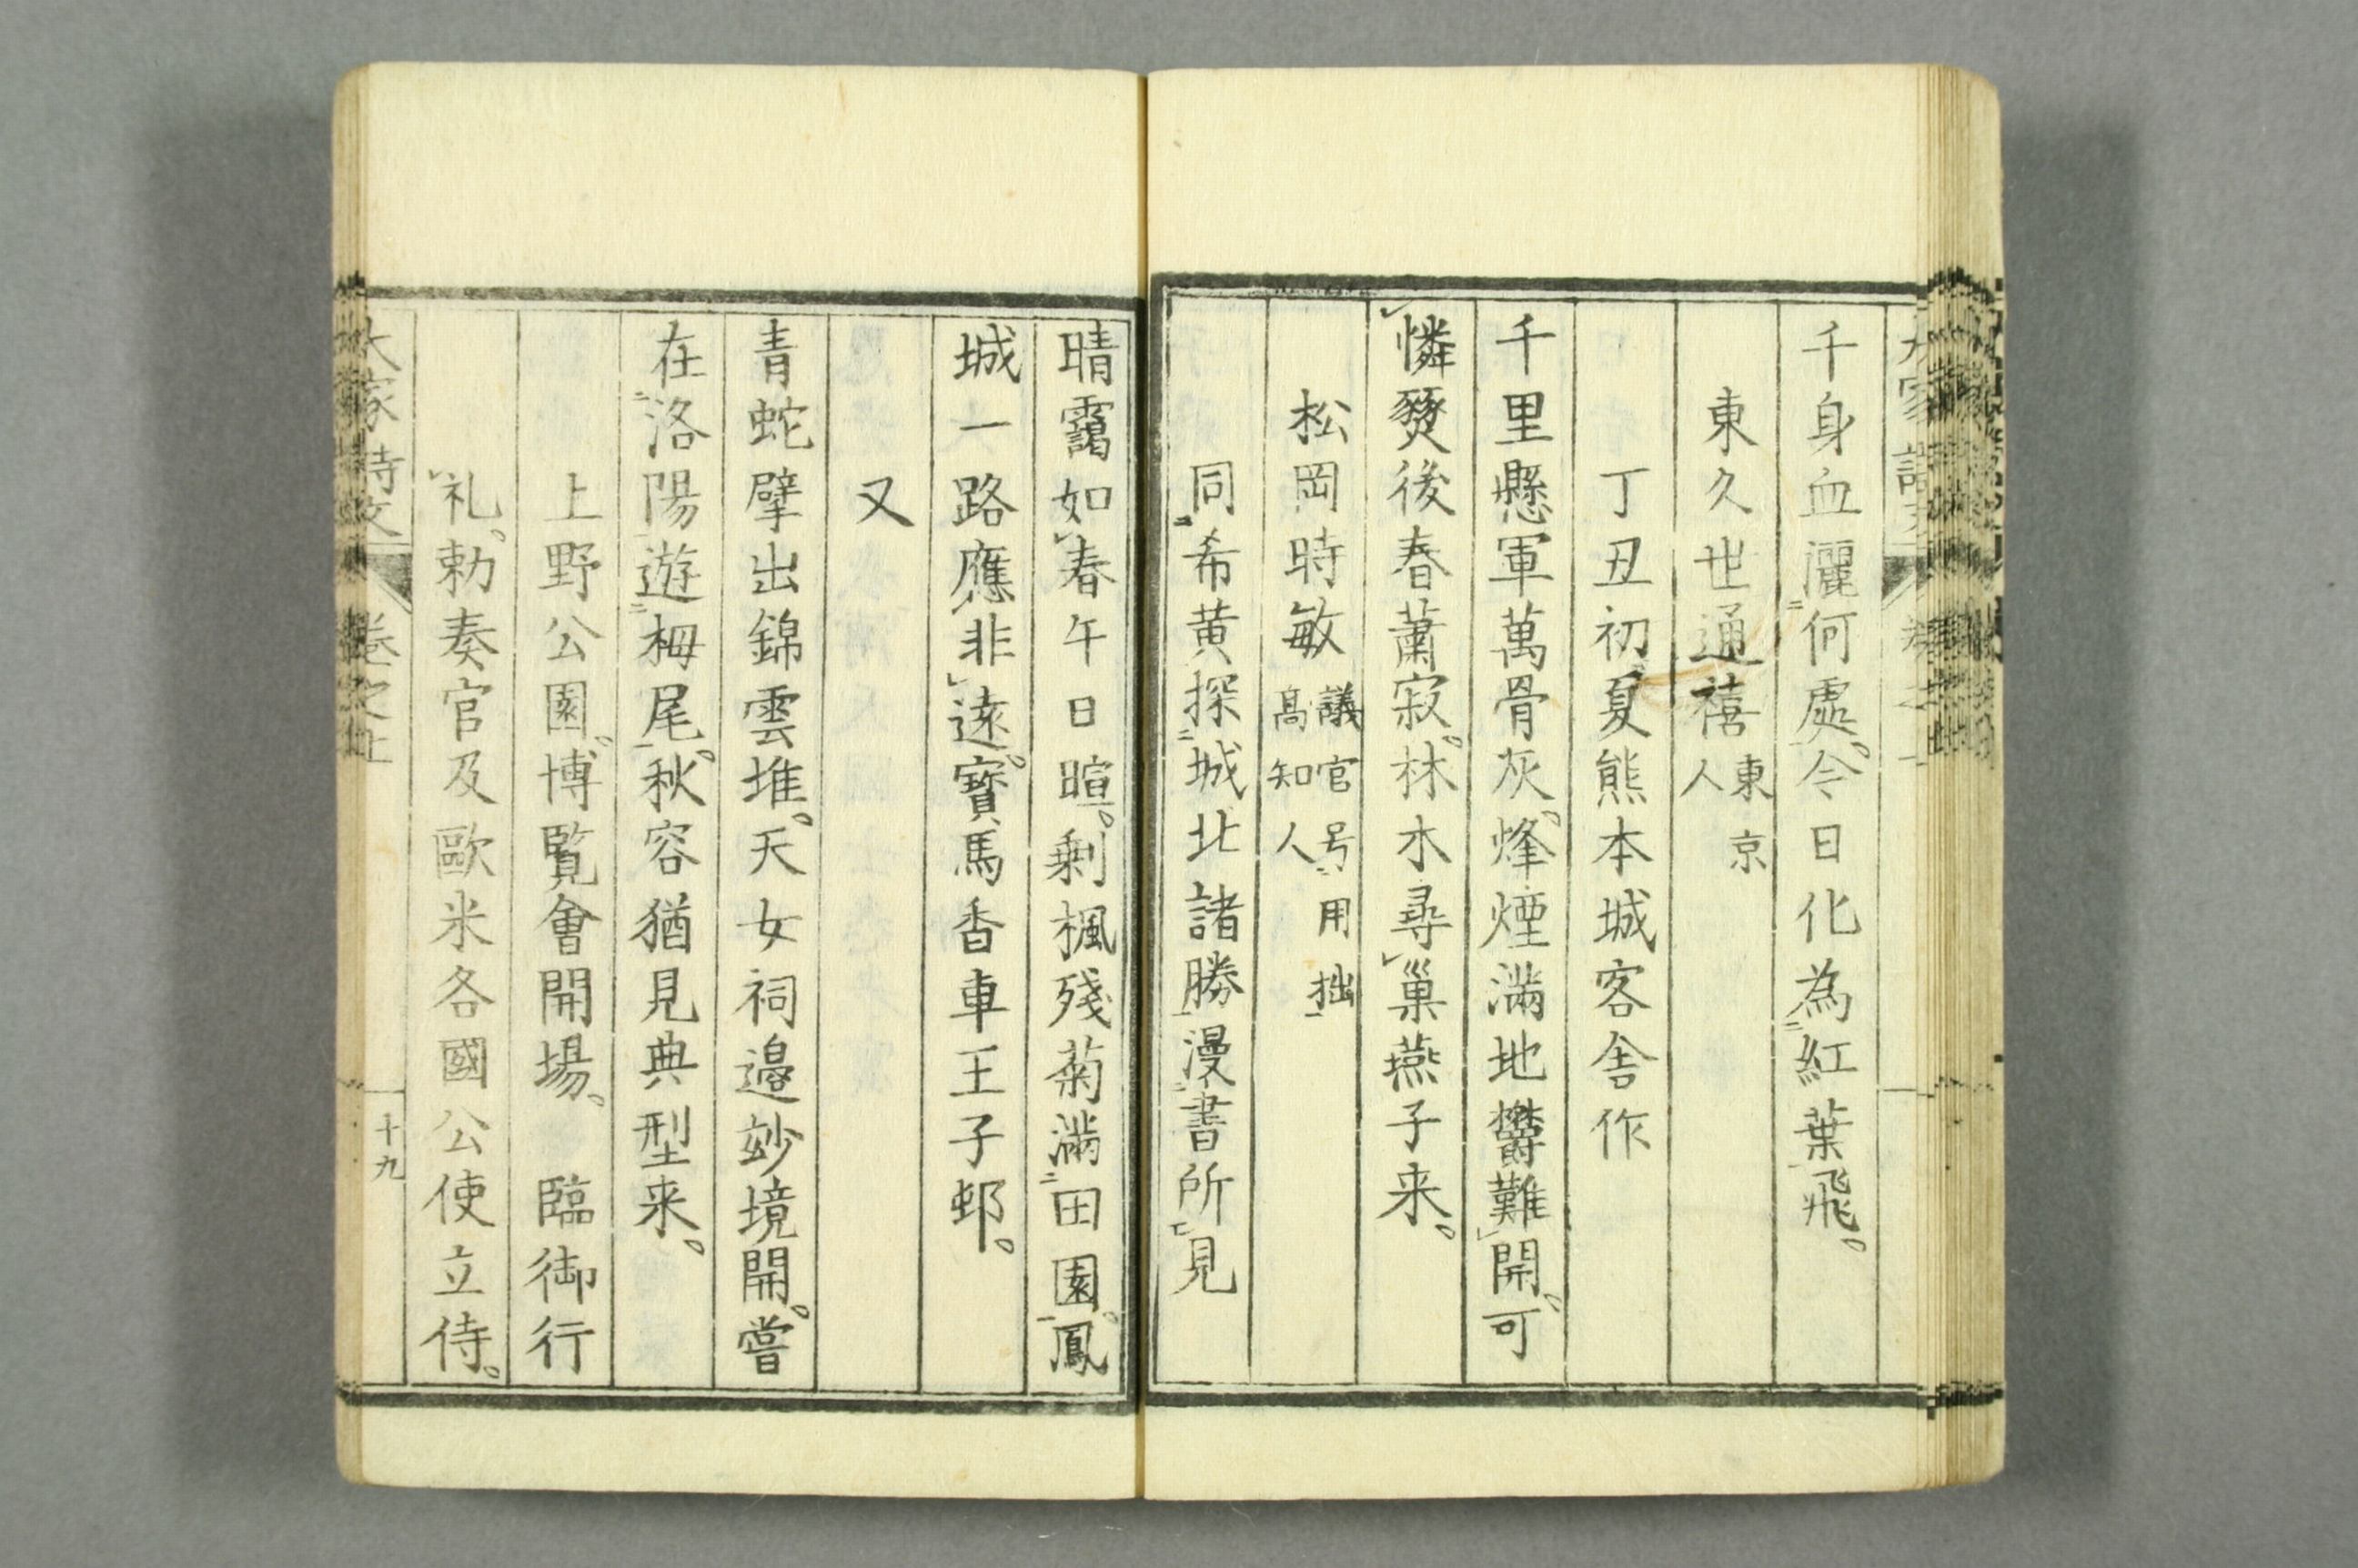 千身血灑何處。今日化為紅葉飛。
東久世通禧 東京人
丁丑初夏熊本城客舎作
千里懸軍萬骨灰。烽煙滿地欝難開。可
憐燹後春蕭寂。林木尋巢燕子来。
松岡時敏 議官号用拙高知人
同希黄探城北諸勝漫書所見
晴靄如春午日暄。剰楓殘菊滿田園。鳳
城一路應非遠。寶馬香車王子邨。
又
青蛇擘出錦雲堆。天女祠邉竗境開。嘗
在洛陽遊栂尾。秋容猶見典型来。
上野公園。博覧會開場。 臨御行
礼。勅奏官及歐米各國公使立侍。
大家詩文 卷之上 十九